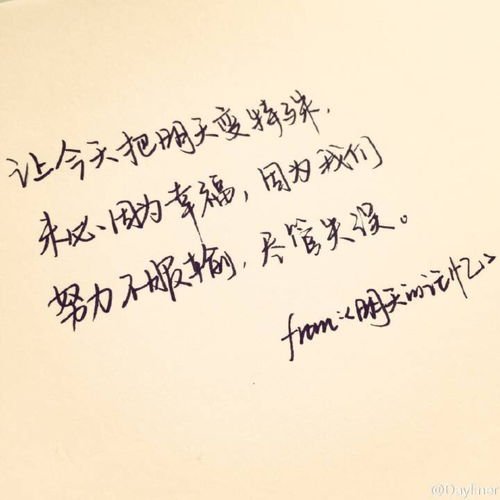 让今天把明天变特殊.
未必因为幸福，因为我们
努力不服输，尽管失误。
from:<明天的记忆>
@Dayliner